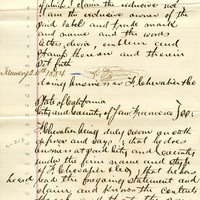 of which I claim the exclusive use
I am the exclusive owner of the
said label and trade mark
and name and the words
letters, device, emblem and
stamp thereon and therein
set forth
January 24th 1884
doing business as F. Chevalier &
State of California
City and County of San Francisco } ss.
F. Chevalier being duly sworn on oath
deposes and says: that he does
business at said City and County
under the firm name and style
of F. Chevalier & Co, that he has
heard the foregoing statement and
claim and knows the contents